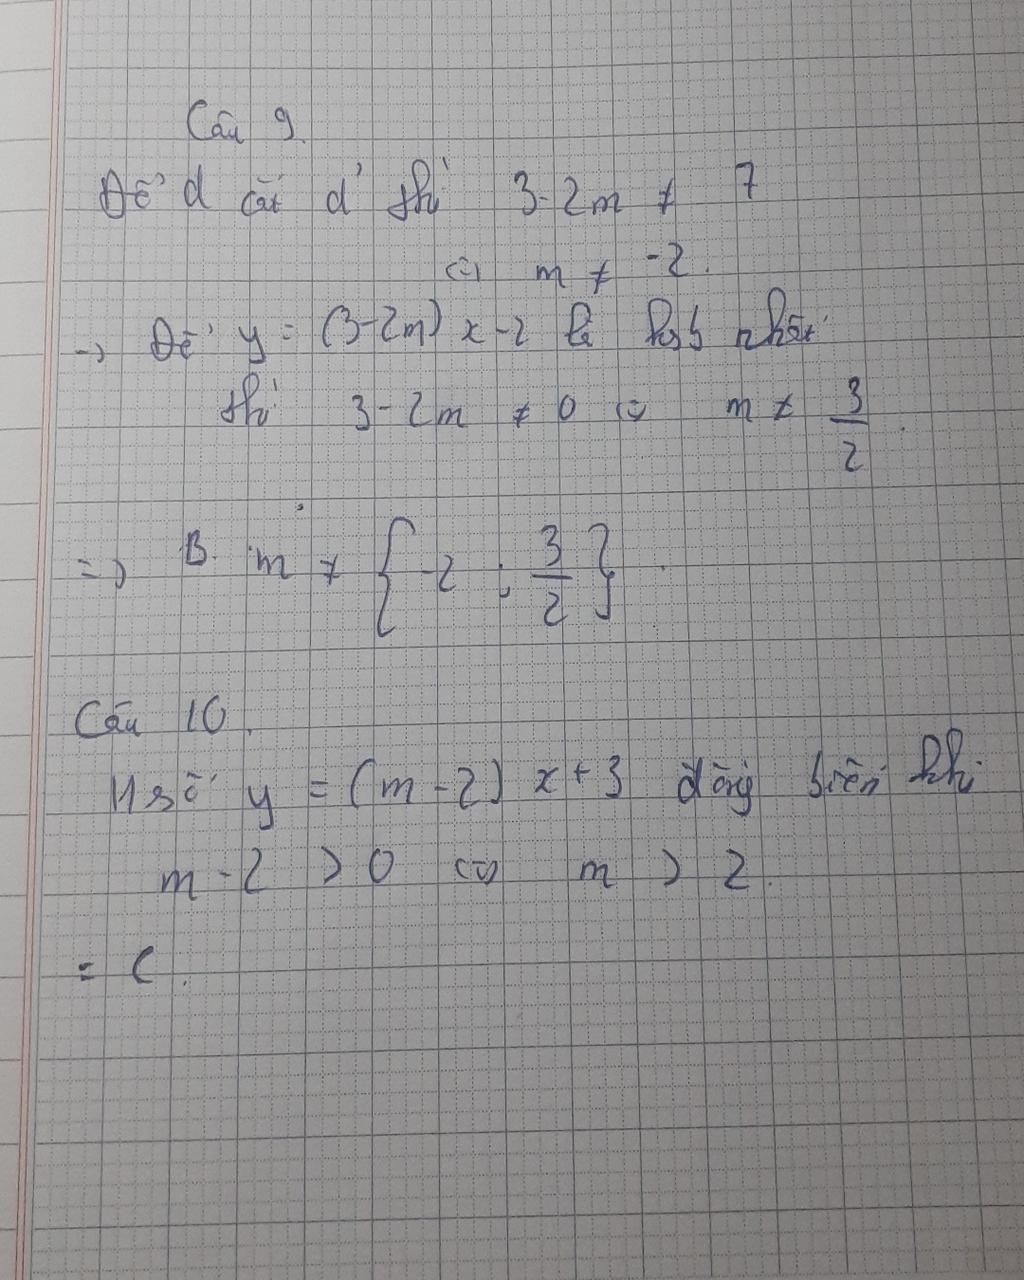 Câu 9.
Để d cắt d' thì 3-2m ≠ 7
<=> m ≠ -2.
-> Để y = (3-2m) x - 2 là hsb nhất
thì 3-2m ≠ 0 <=> m ≠ 3/2.
=> B. m ≠ {-2 ; 3/2}.
Câu 10.
H số y = (m-2) x + 3 đồng biến khi
m-2 > 0 <=> m > 2.
= C.